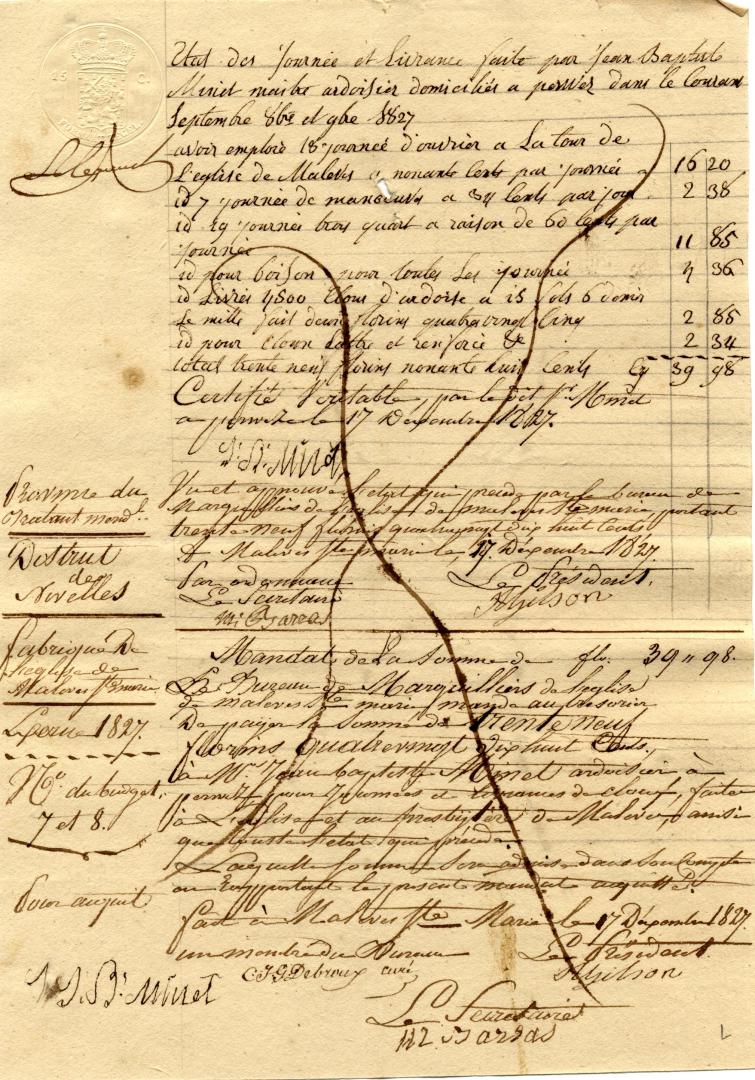 Etat des Journée et Livrance faite par Jean Baptist
Minet maitre ardoisier domiciliés a perwez dans le Courant
Septembre 8bre et 9bre 1827
avoir emploié 18 journée d'ouvrier a La tour de
L'eglise de Malevès a nonante Cents par Journée a 16 20
id 7 journée de manoeuvre a 34 Cents par jour 2 38
id 19 journée trois quart a raison de 60 Cents par
journée 11 85
id pour boison pour toutes Les journée 4 36
id Livrés 4500 Clous d'ardoise a 15 sols 6 denier
Le mille fait deux florins quatrevingt Cinq 2 85
id pour Cloux Latte et renforcé & 2 34
total trente neuf florins nonante huit Cents 39 98
Certifié Véritable, par le dit Sr Minet
a perwez le 17 Décembre 1827.
J. Bt. Minet
Province du
Brabant mond.l
Vu et approuvé l'etat qui précéde par le bureau de
Marguilliers de l'eglise de maleves Ste marie, portant
trente neuf florins quatrevingt dix huit Cents
A Malèves Ste marie le, 17 Décembre 1827
Par ordonnance
Le Président.
Le Secrétaire
Gilson
M: Barras
District
de
Nivelles
Fabrique De
l'eglise de
Malèves Ste marie
Mandat de La Somme de flo. 39 „ 98.
Le Bureau de Marguilliers de l'eglise
de maleves Ste marie mande au trésorier
De payer la Somme de trente neuf
florins quatrevingt dix huit Cents,
1827.
No du budget,
7 et 8.
à Mr. Jean baptiste Minet ardoisier à
perwez pour journées et Livrances de cloux, faite
à L'eglise et au presbytère de Malèves, ainsi
que Conste l'etat qui précéde.
Laquelle Somme Sera admise dans Son Compte
en rapportant le present mandat acquitté.
Pour acquit
fait à Malèves Ste Marie le 17 Décembre 1827.
un membre du Bureau
Le Président
C.J.G Debroux curé
Gilson
J. Bt. Minet
Le Secretaire
M: Barras